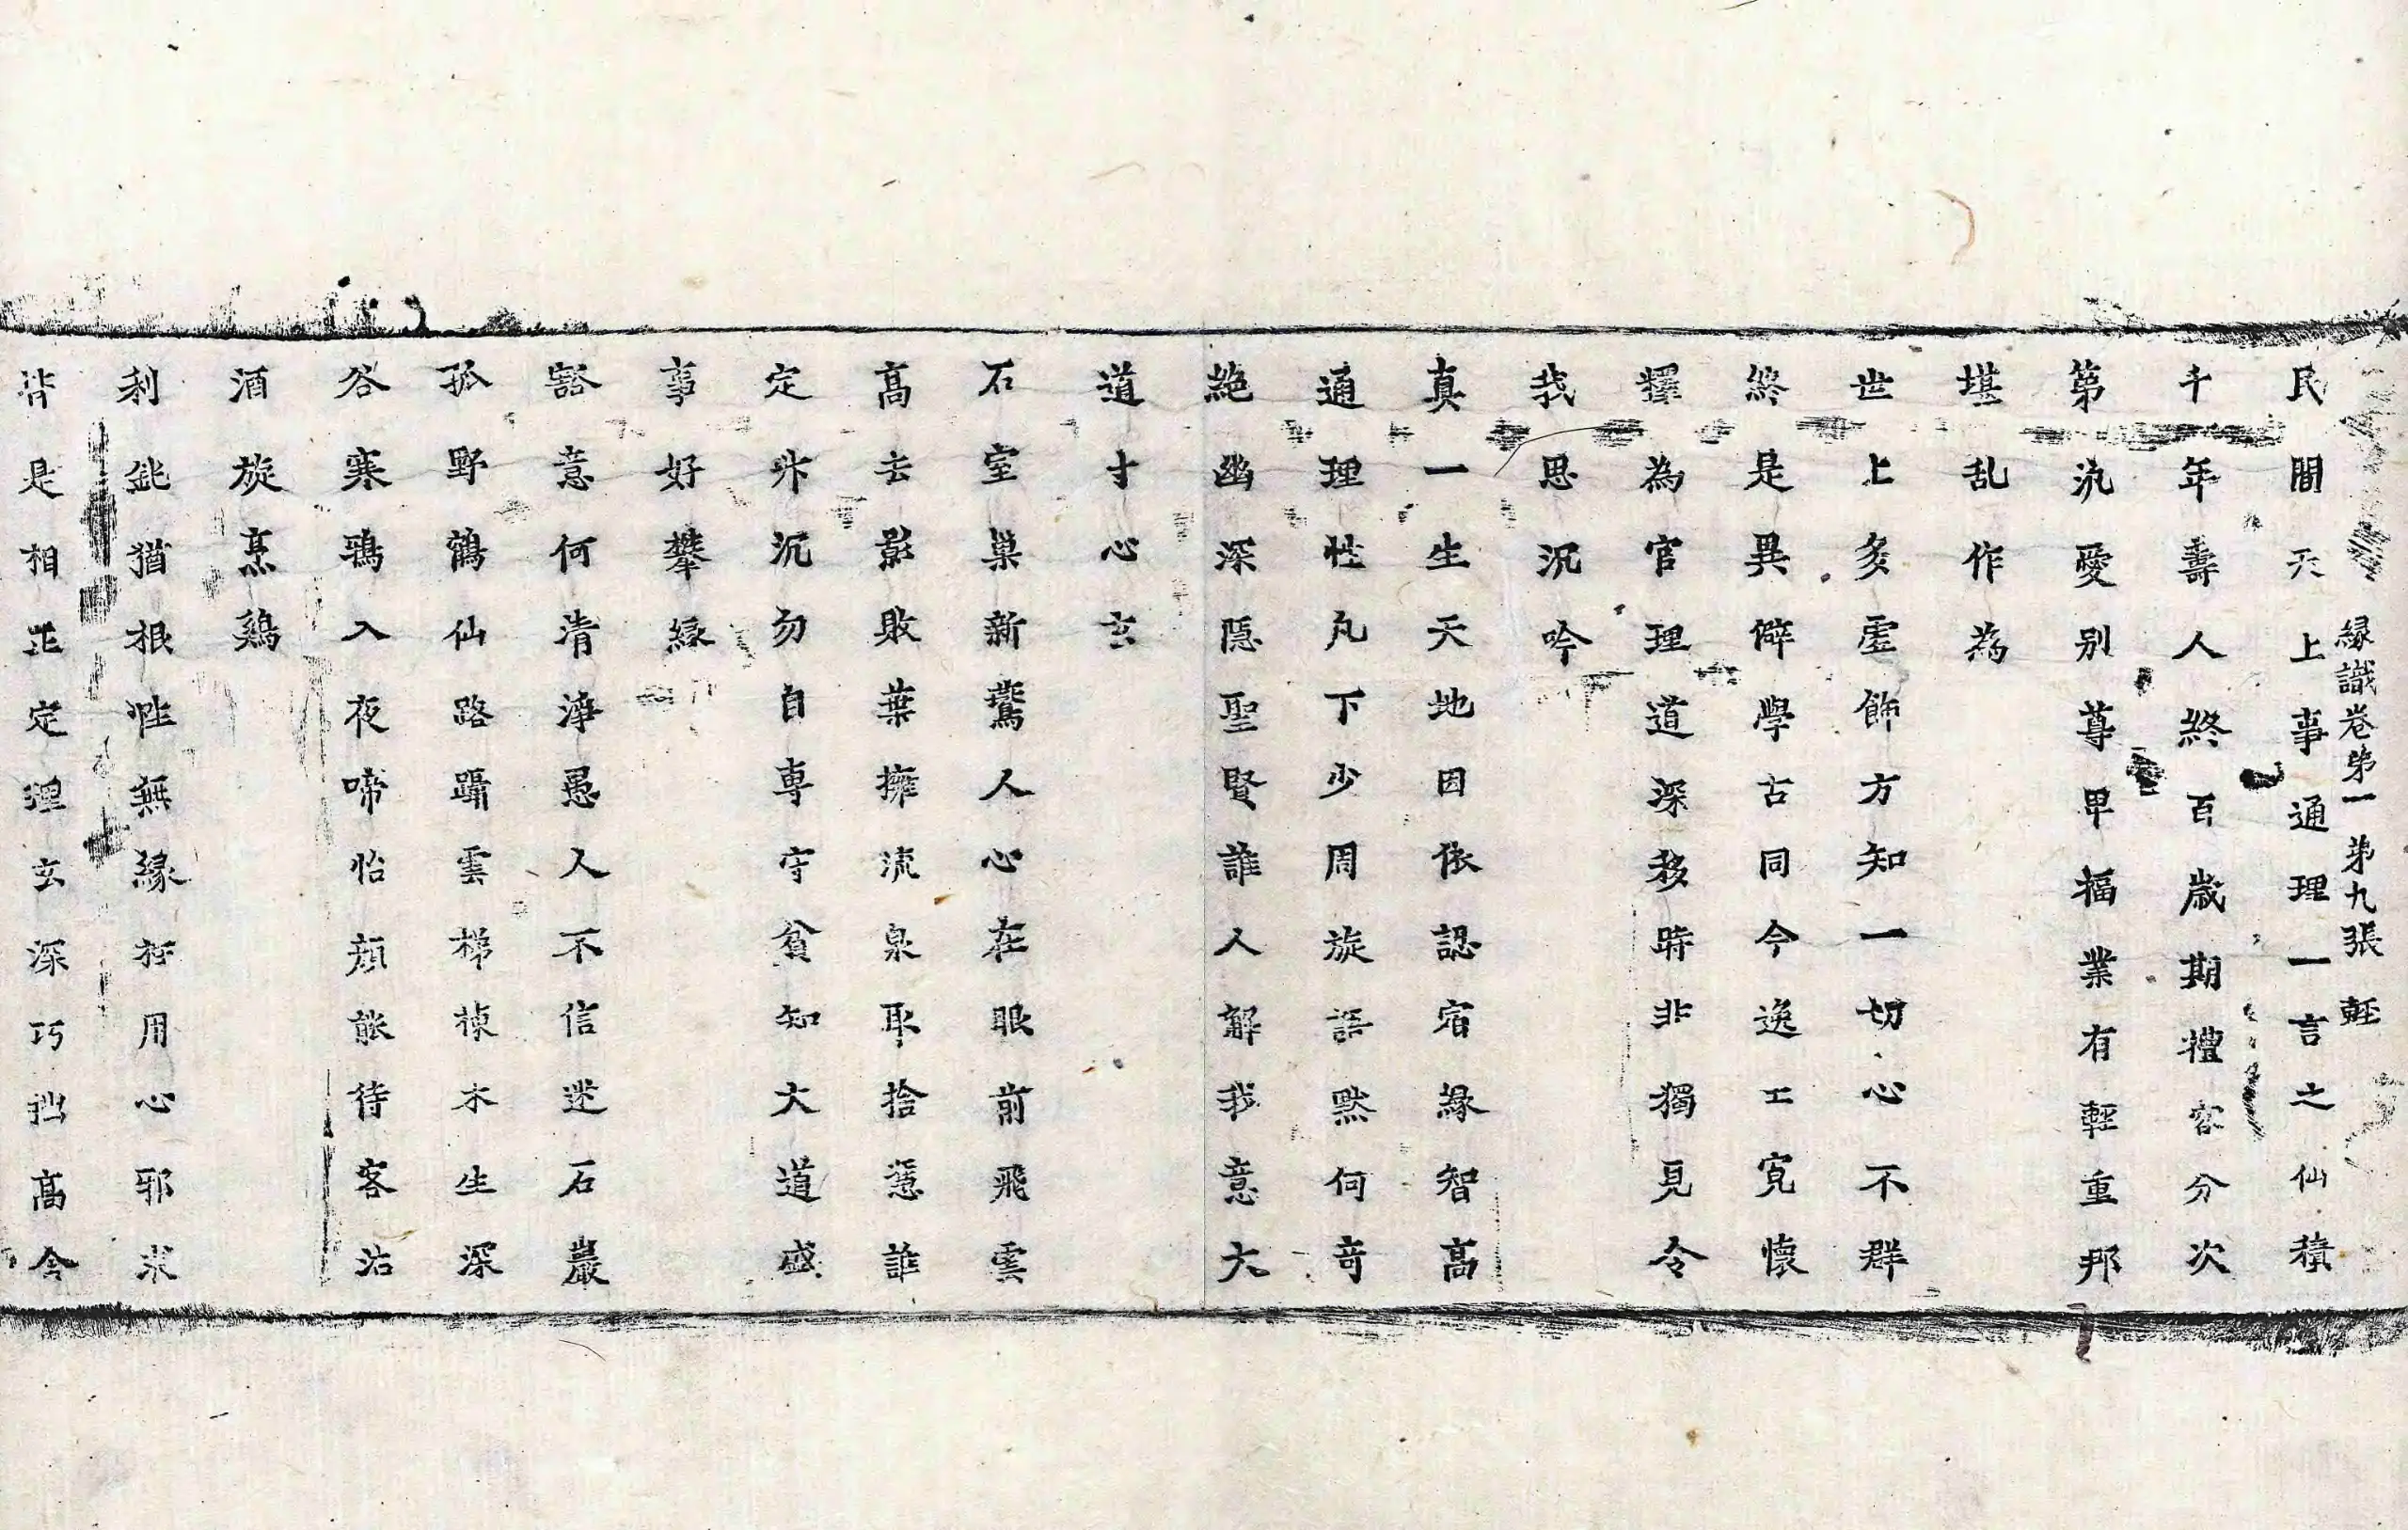 緣識卷第一 第九張 輊
民間天上事通理一言之仙積
千年壽人終百歲期禮容分次
第汎愛別尊卑福業有輕重邦
堪乱作為
世上多虛飾方知一切心不群
終是異僻學古同今逸工寬懷
擇為官理道深移時非獨見令
我思沉吟
真一生天地因依認宿緣智高
通理性凡下少周旋語默何奇
絕幽深隱聖賢誰人解我意大
道寸心玄
石室巢新鷰人心在眼前飛雲
高去影敗葉擁流泉取捨憑誰
定升沉勿自專守貧知大道盛
事好攀緣
豁意何清淨愚人不信迷石巖
孤野鶴仙路躡雲梯棟木生深
谷寒鴉入夜啼怡顏能待客沽
酒旋烹鷄
利鈍猶根性無緣枉用心邪求
皆是相正定理玄深巧拙高今